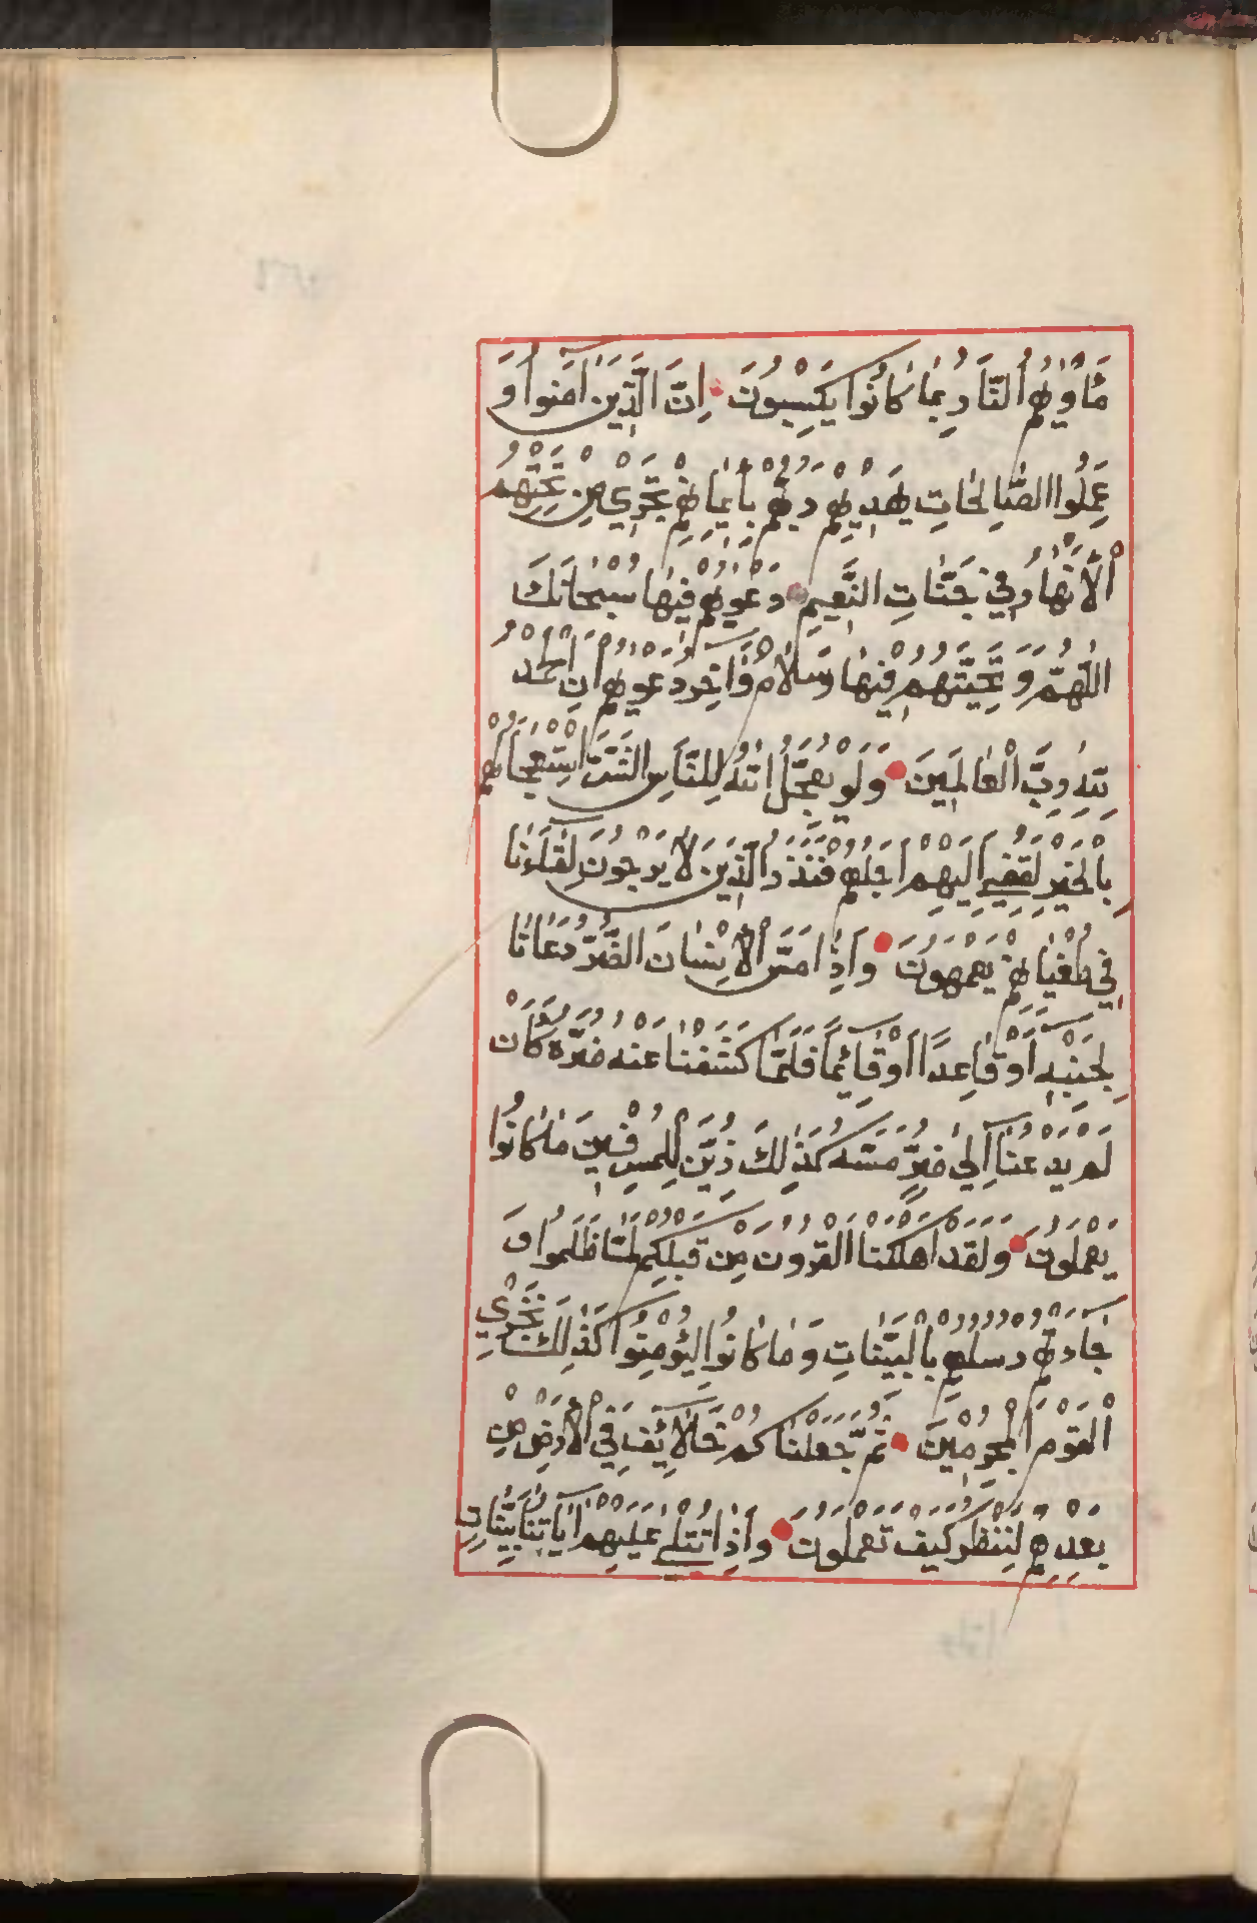 مَأْوٰيهُمُ النَّارُ بِمٰا كٰانُوا يَكْسِبُونَ اِنَّ الَّذِينَ اٰمَنُوا وَ
عَمِلُوا الصّٰالِحٰاتِ يَهْدِيهِمْ رَبُّهُمْ بِاِيمٰانِهِمْ تَجْرِي مِنْ تَحْتِهِمُ
الْاَنْهٰارُ فِي جَنّٰاتِ النَّعِيمِ دَعْوٰيهُمْ فِيهٰا سُبْحٰانَكَ
اللّٰهُمَّ وَ تَحِيَّتُهُمْ فِيهٰا سَلٰامٌ وَاٰخِرُ دَعْوٰيهُمْ اَنِ الْحَمْدُ
لِلّٰهِ رَبِّ الْعٰالَمِينَ وَلَوْ يُعَجِّلُ اللّٰهُ لِلنّٰاسِ الشَّرَّ اسْتِعْجٰالَهُمْ
بِالْخَيْرِ لَقُضِيَ اِلَيْهِمْ اَجَلُهُمْ فَنَذَرُ الَّذِينَ لٰا يَرْجُونَ لِقٰاءَنٰا
فِي طُغْيٰانِهِمْ يَعْمَهُونَ وَاِذٰا مَسَّ الْاِنْسٰانَ الضُّرُّ دَعٰانٰا
لِجَنْبِهِ اَوْ قٰاعِدًا اَوْ قٰائِمًا فَلَمّٰا كَشَفْنٰا عَنْهُ ضُرَّهُ كَانْ
لَمْ يَدْعُنٰا اِلٰي ضُرٍّ مَسَّهُ كَذٰلِكَ زُيِّنَ لِلْمُسْرِفِينَ مٰا كٰانُوا
يَعْمَلُونَ وَلَقَدْ اَهْلَكْنَا الْقُرُونَ مِنْ قَبْلِكُمْ لَمّٰا ظَلَمُوا وَ
جٰاءَتْهُمْ رُسُلُهُمْ بِالْبَيِّنٰاتِ وَ مٰا كٰانُوا لِيُؤْمِنُوا كَذٰلِكَ نَجْزِي
الْقَوْمَ الْمُجْرِمِينَ ثُمَّ جَعَلْنٰاكُمْ خَلٰائِفَ فِي الْاَرْضِ مِنْ
بَعْدِهِمْ لِنَنْظُرَ كَيْفَ تَعْمَلُونَ وَاِذٰا تُتْلٰي عَلَيْهِمْ اٰيٰاتُنٰا بَيِّنٰاتٍ